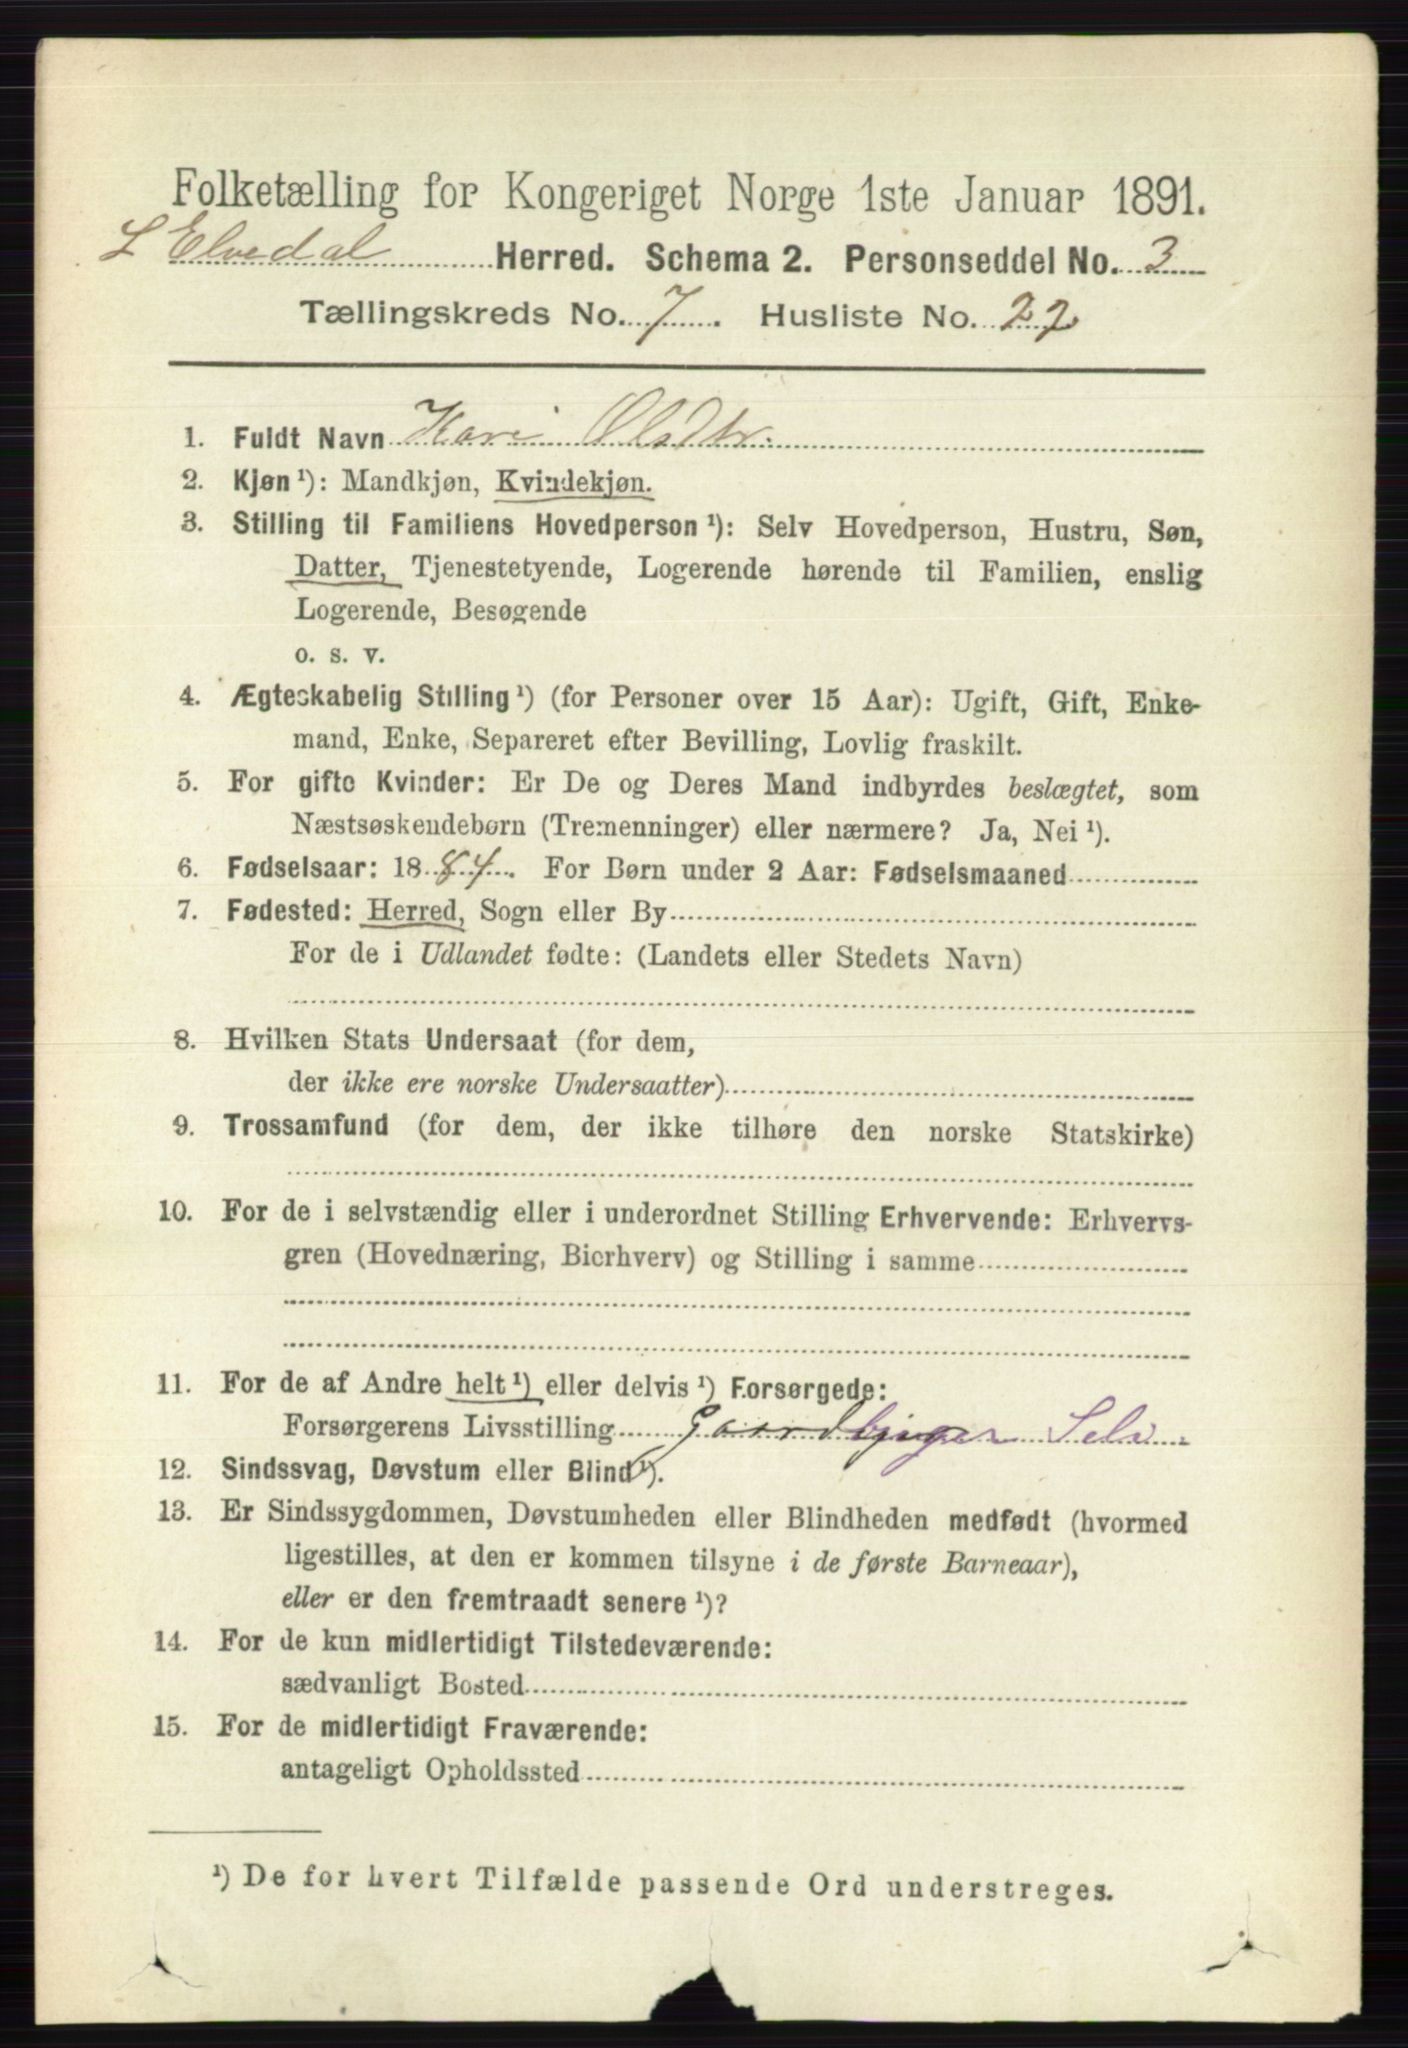 Folketælling for Kongeriget Norge 1ste Januar 1891.
L Elvedal Herred. Schema 2. Personseddel No. 3
Tællingskreds No. 7. Husliste No. 22
1. Fuldt Navn Kari Olsdtr.
2. Kjøn ¹): Mandkjøn, Kvindekjøn.
3. Stilling til Familiens Hovedperson ¹): Selv Hovedperson, Hustru, Søn,
Datter, Tjenestetyende, Logerende hørende til Familien, enslig
Logerende, Besøgende
o. s. v.
4. Ægteskabelig Stilling ¹) (for Personer over 15 Aar): Ugift, Gift, Enke-
mand, Enke, Separeret efter Bevilling, Lovlig fraskilt.
5. For gifte Kvinder: Er De og Deres Mand indbyrdes beslægtet, som
Næstsøskendebørn (Tremenninger) eller nærmere? Ja, Nei ¹).
6. Fødselsaar: 1884. For Børn under 2 Aar: Fødselsmaaned
7. Fødested: Herred, Sogn eller By
For de i Udlandet fødte: (Landets eller Stedets Navn)
8. Hvilken Stats Undersaat (for dem,
der ikke ere norske Undersaatter)
9. Trossamfund (for dem, der ikke tilhøre den norske Statskirke)
10. For de i selvstændig eller i underordnet Stilling Erhvervende: Erhvervs-
gren (Hovednæring, Bierhverv) og Stilling i samme
11. For de af Andre helt ¹) eller delvis ¹) Forsørgede:
Forsørgerens Livsstilling
12. Sindssvag, Døvstum eller Blind ¹).
13. Er Sindssygdommen, Døvstumheden eller Blindheden medfødt (hvormed
ligestilles, at den er kommen tilsyne i de første Barneaar),
eller er den fremtraadt senere ¹)?
14. For de kun midlertidigt Tilstedeværende:
sædvanligt Bosted
15. For de midlertidigt Fraværende:
antageligt Opholdssted
¹) De for hvert Tilfælde passende Ord understreges.